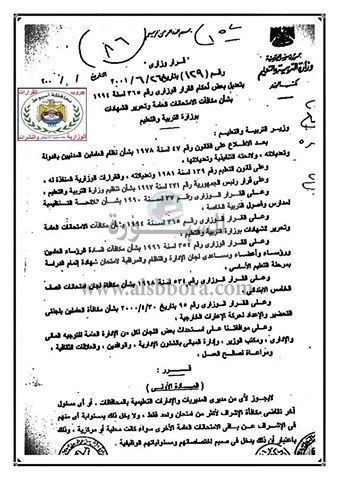 جمهورية مصر العربية
وزارة التربية والتعليم
مكتب الوزير
قرار وزارى
رقم (١٢٩) بتاريخ ٢٠٠١/٦/٢٦
بتعديل بعض أحكام القرار الوزارى رقم ٣٦٥ لسنة ١٩٩٤
بشأن مكافآت الامتحانات العامة وتحرير الشهادات
بوزارة التربية والتعليم
جروب القرارات
الوزارية والنشرات
وزير التربية والتعليم :
بعد الاطلاع على القانون رقم ٤٧ لسنة ١٩٧٨ بشأن نظام العاملين المدنيين بالدولة
وتعديلاته ، ولائحته التنفيذية وتعديلاتها .
وعلى قانون التعليم رقم ١٣٩ لسنة ١٩٨١ وتعديلاته ، والقرارات الوزارية المنفذة له .
وعلى قرار رئيس الجمهورية رقم ٢٧١ لسنة ١٩٩٧ بشأن تنظيم وزارة التربية والتعليم .
وعلى القرار الوزارى رقم ٣٧ لسنة ١٩٩٠ بشأن اللائحة التنظيمية
لمدارس وفصول التربية الخاصة .
وعلى القرار الوزارى رقم ٣٦٥ لسنة ١٩٩٤ بشأن مكافآت الامتحانات العامة
وتحرير الشهادات بوزارة التربية والتعليم .
وعلى القرار الوزارى رقم لسنة ١٩٩٦ بشأن مكافآت السادة الرؤساء العامين
ورؤساء وأعضاء ومساعدى لجان الإدارة والنظام والمراقبة لامتحان شهادة إتمام الدراسة
بمرحلة التعليم الأساسى .
وعلى القرار الوزارى رقم ٥٣٤ لسنة ١٩٩٨ بشأن لجان امتحان الصف
الخامس الابتدائى .
وعلى القرار الوزارى رقم ٩٥ بتاريخ ٢٠٠٠/٤/٣٠ بشأن مكافأة العاملين بلجنتى
التحضير والإعداد لحركة الإعارات الخارجية .
وعلى موافقتنا على استحداث بعض اللجان لكل من الإدارة العامة للتوجيه المالى
والإدارى ، ومكتب الوزير ، وإدارة المبانى بالشئون الإدارية ، والوافدين ، والعلاقات الثقافية ،
ومراعاة لصالح العمل .
قرر :
(المادة الأولى)
لايجوز لأى من مديرى المديريات والإدارات التعليمية بالمحافظات ، أو أى مسئول
آخر تقاضى مكافأة الإشراف لأكثر من امتحان واحد فقط ، ولا يخل ذلك بمسئولية أى منهم
فى الإشراف عن باقى الامتحانات العامة الأخرى سواء كانت محلية أو مركزية ،
باعتبار أن ذلك يدخل فى صميم اختصاصاتهم ومسئولياتهم الوظيفية .
www.alsbbora.com